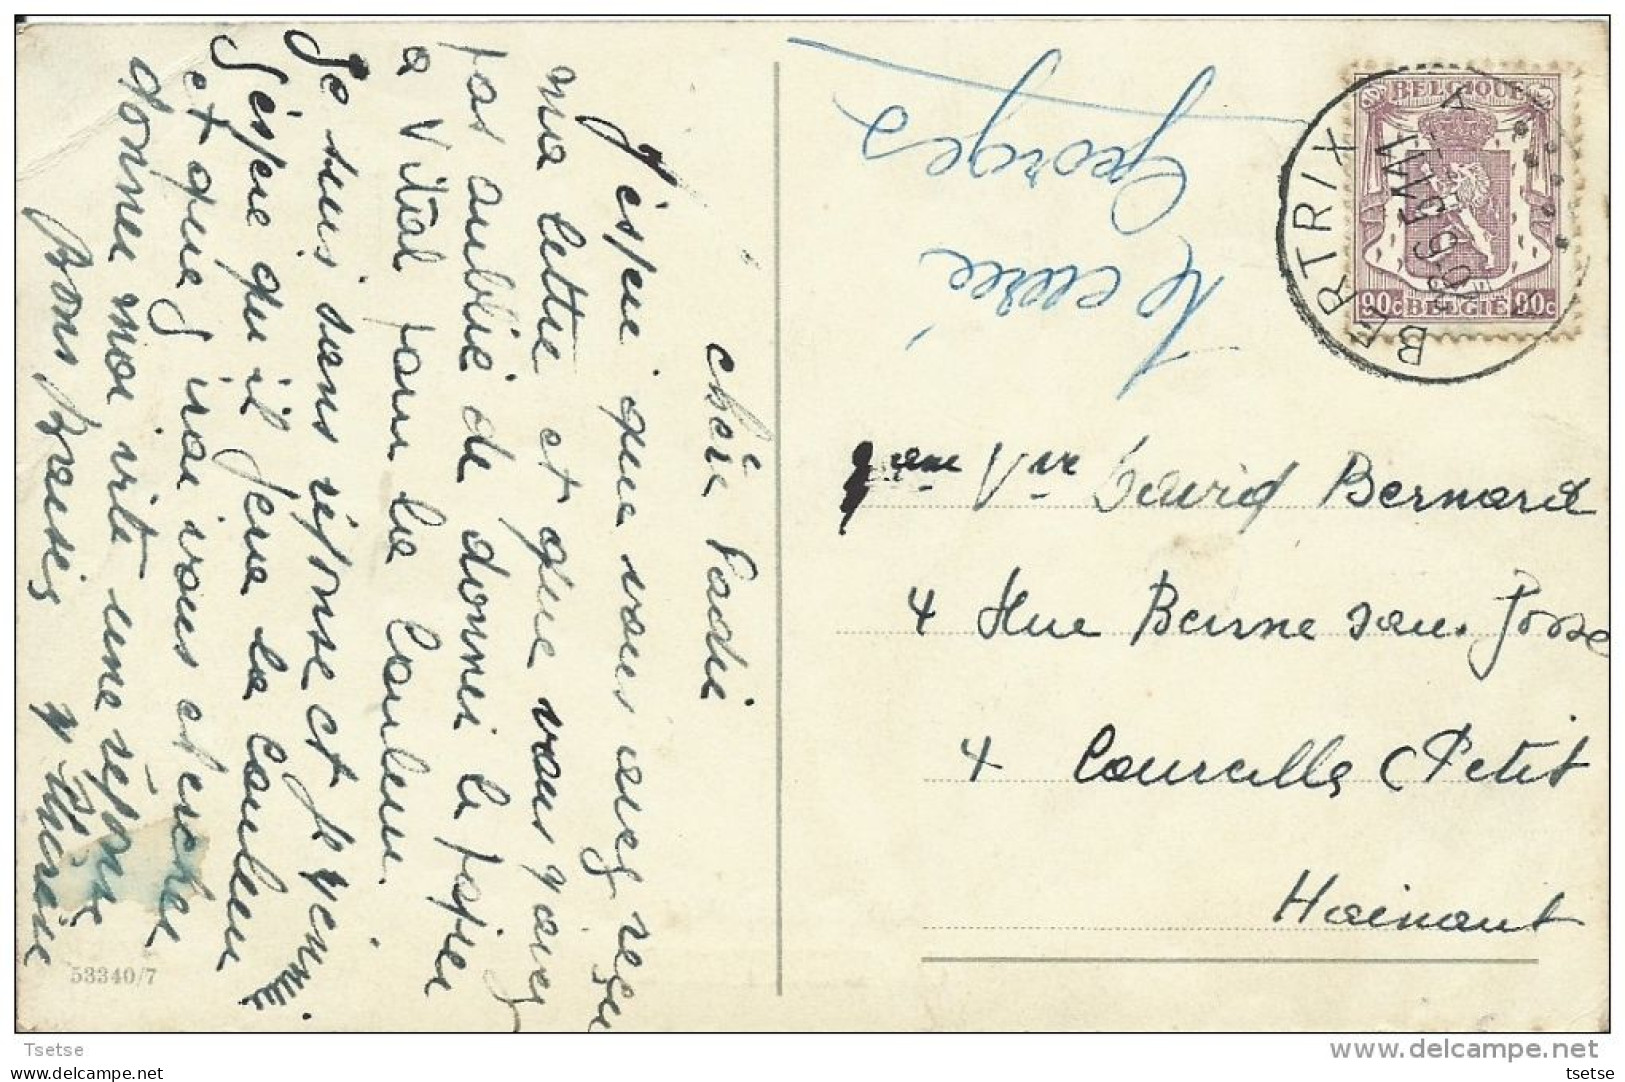 chère Paulie
J'ésper que vous avez reçu
ma lettre et que vous n'avez
pas oublié de donner le papier
a Vital pour la couleur.
Je suis sans réponse et je
J'éspere qu'il fera la couleur
et que j'irai vous chercher
donner moi vite une réponse
bons baisers
le curé
Georges
BERTRIX
BELGIQUE
90c BELGIE 90c
Vve David Bernard
4 Rue Basse
4 Courcelles (Petit
Hainaut
53340/7
Tsetse
www.delcampe.net
tsetse